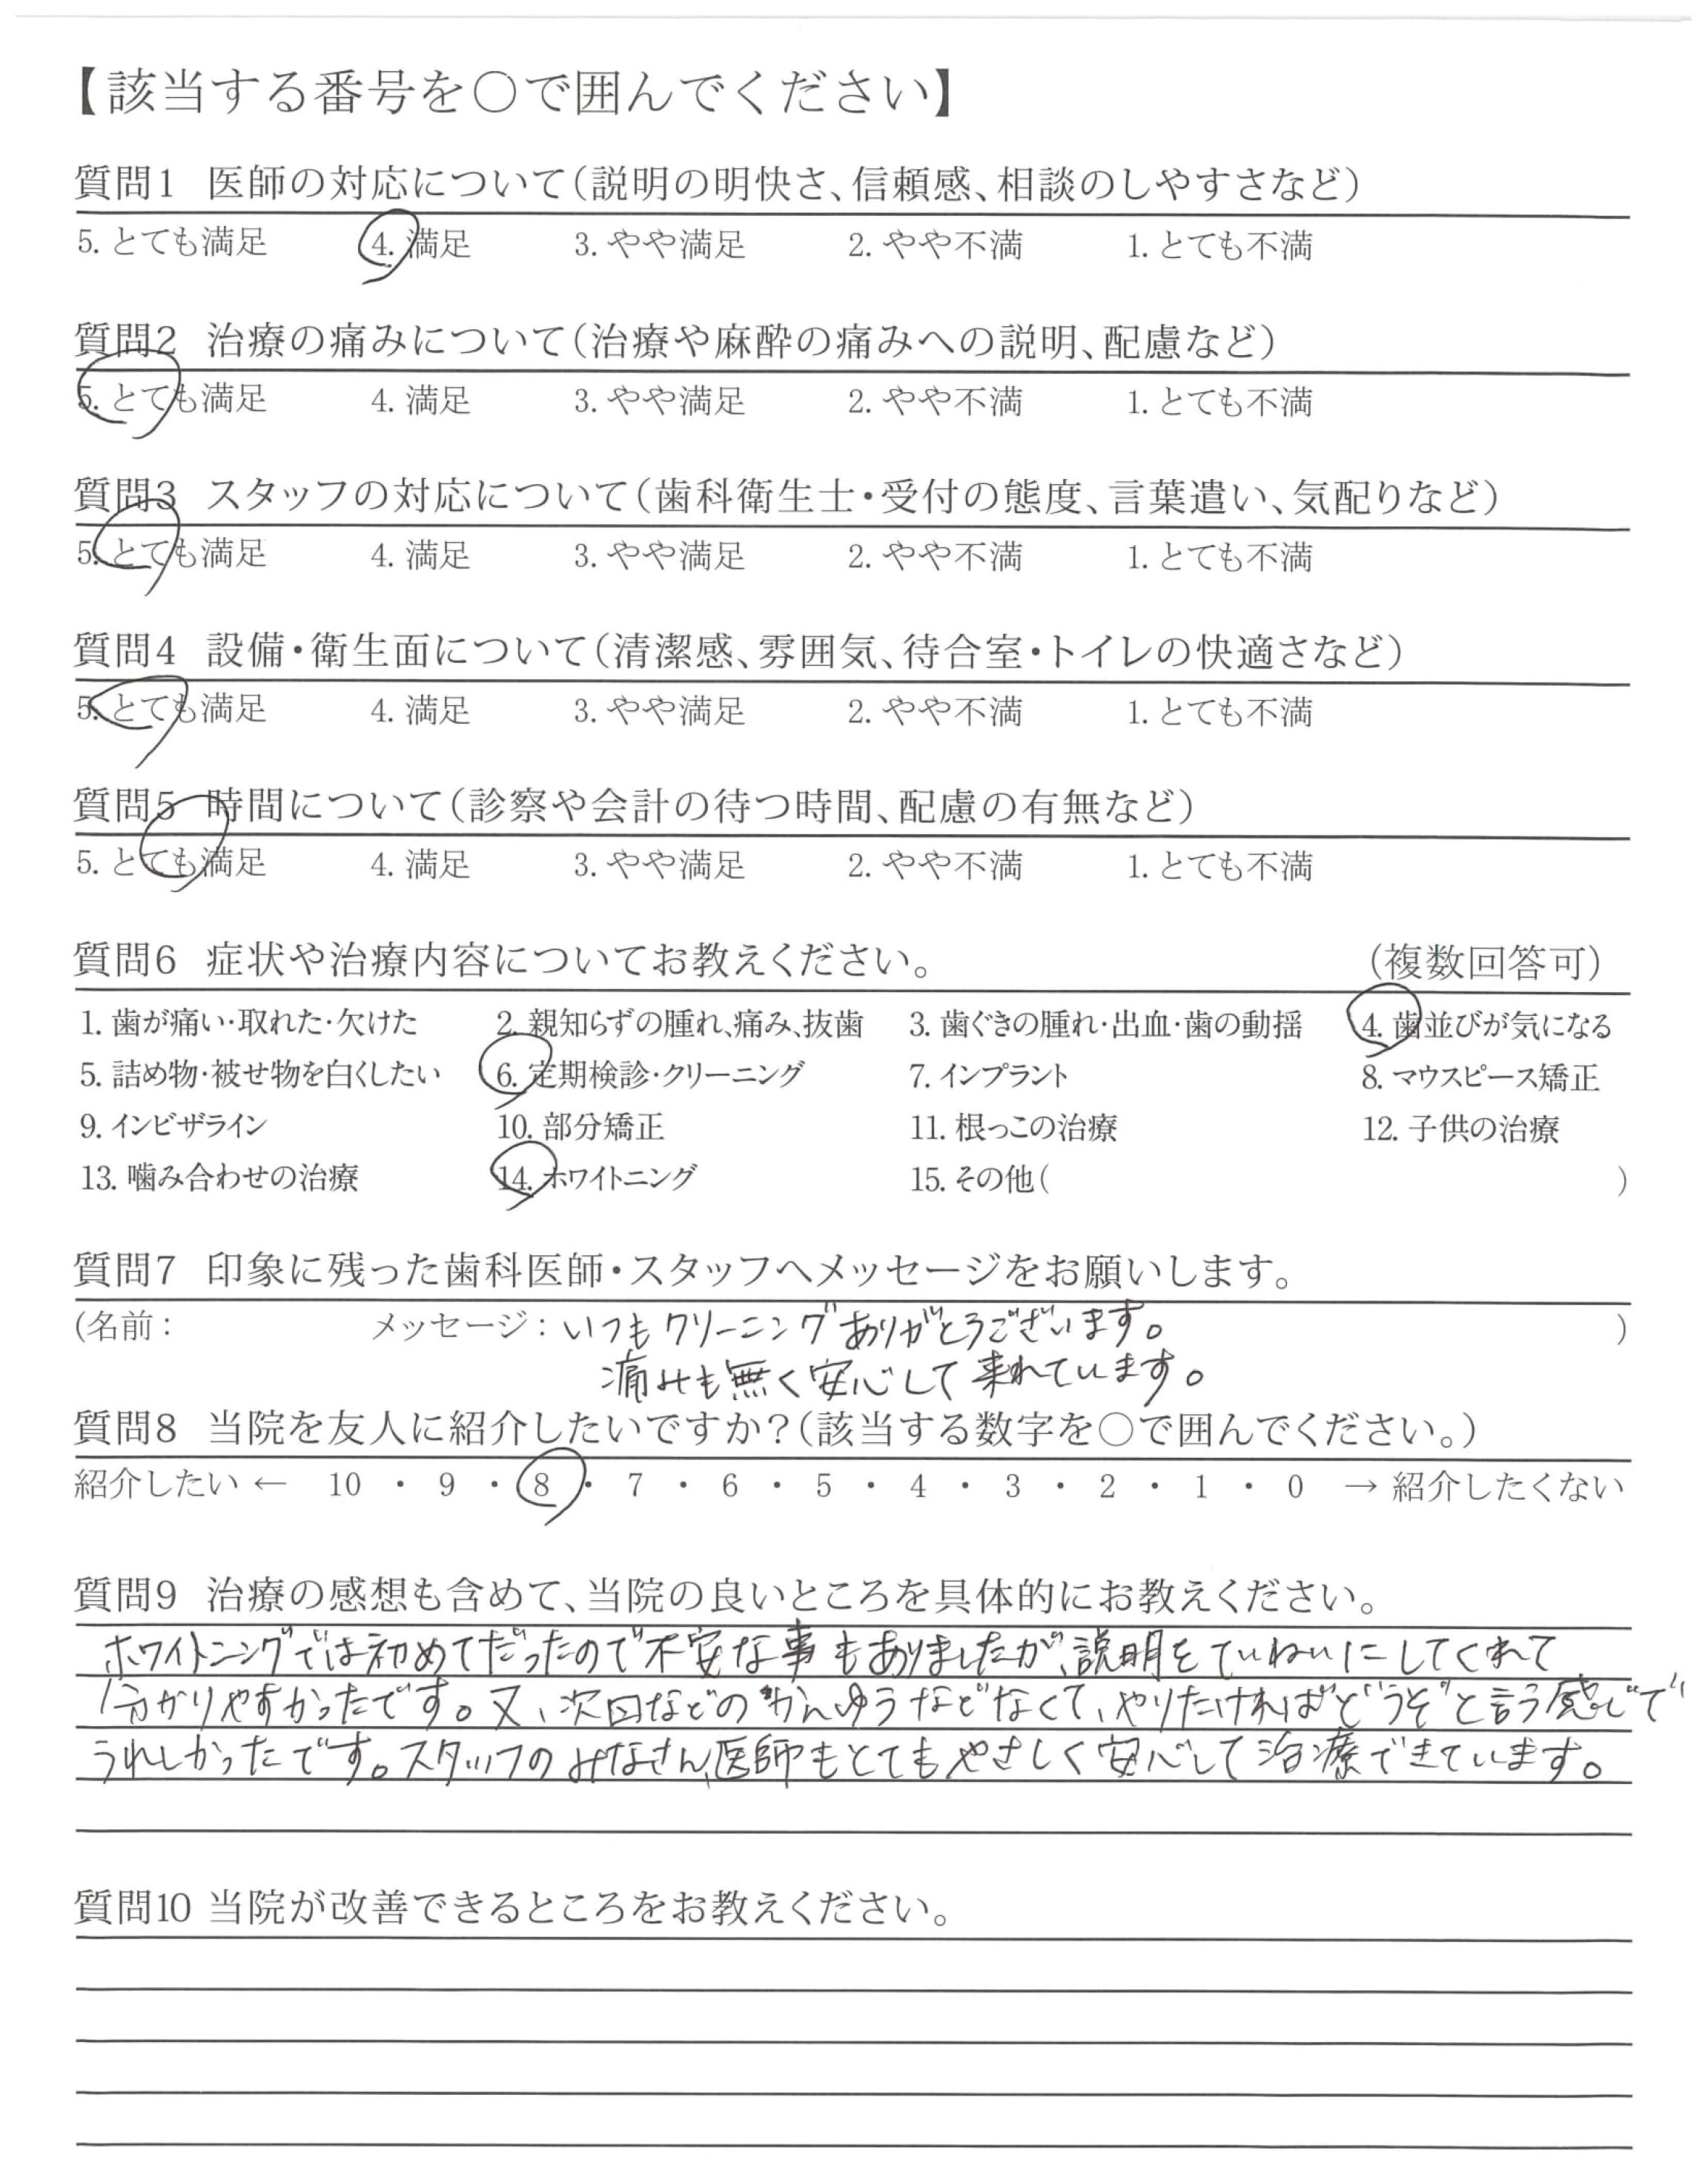 【該当する番号を○で囲んでください】
質問1 医師の対応について（説明の明快さ、信頼感、相談のしやすさなど）
5. とても満足 4. 満足 3. やや満足 2. やや不満 1. とても不満
質問2 治療の痛みについて（治療や麻酔の痛みへの説明、配慮など）
5. とても満足 4. 満足 3. やや満足 2. やや不満 1. とても不満
質問3 スタッフの対応について（歯科衛生士・受付の態度、言葉遣い、気配りなど）
5. とても満足 4. 満足 3. やや満足 2. やや不満 1. とても不満
質問4 設備・衛生面について（清潔感、雰囲気、待合室・トイレの快適さなど）
5. とても満足 4. 満足 3. やや満足 2. やや不満 1. とても不満
質問5 時間について（診察や会計の待つ時間、配慮の有無など）
5. とても満足 4. 満足 3. やや満足 2. やや不満 1. とても不満
質問6 症状や治療内容についてお教えください。 （複数回答可）
1. 歯が痛い・取れた・欠けた 2. 親知らずの腫れ、痛み、抜歯 3. 歯ぐきの腫れ・出血・歯の動揺 4. 歯並びが気になる
5. 詰め物・被せ物を白くしたい 6. 定期検診・クリーニング 7. インプラント 8. マウスピース矯正
9. インビザライン 10. 部分矯正 11. 根っこの治療 12. 子供の治療
13. 噛み合わせの治療 14. ホワイトニング 15. その他（ ）
質問7 印象に残った歯科医師・スタッフへメッセージをお願いします。
(名前： メッセージ：いつもクリーニングありがとうございます。 )
痛みも無く安心して来れています。
質問8 当院を友人に紹介したいですか？（該当する数字を○で囲んでください。）
紹介したい ← 10 ・ 9 ・ 8 ・ 7 ・ 6 ・ 5 ・ 4 ・ 3 ・ 2 ・ 1 ・ 0 → 紹介したくない
質問9 治療の感想も含めて、当院の良いところを具体的にお教えください。
ホワイトニングでは初めてだったので不安な事もありましたが、説明をていねいにしてくれて
分かりやすかったです。又、次回などのかんゆうなどなくて、やりたければ"どうぞ"と言う感じで
うれしかったです。スタッフのみなさん、医師もとてもやさしく安心して治療できています。
質問10 当院が改善できるところをお教えください。